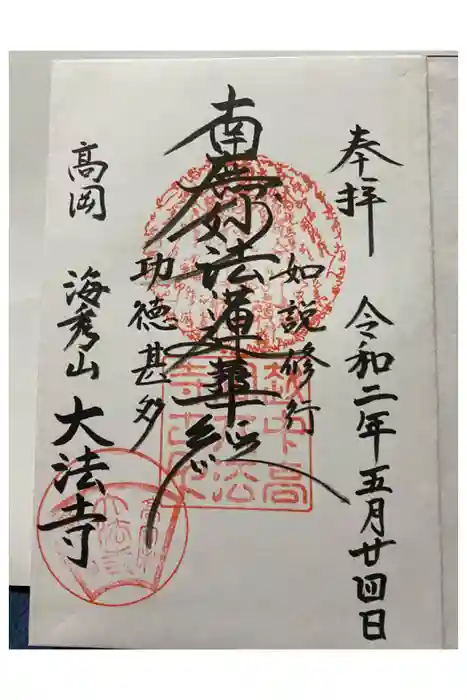 奉拝
令和二年五月廿四日
如説修行
南無妙法蓮華経
功徳甚多
高岡
海秀山
大法寺